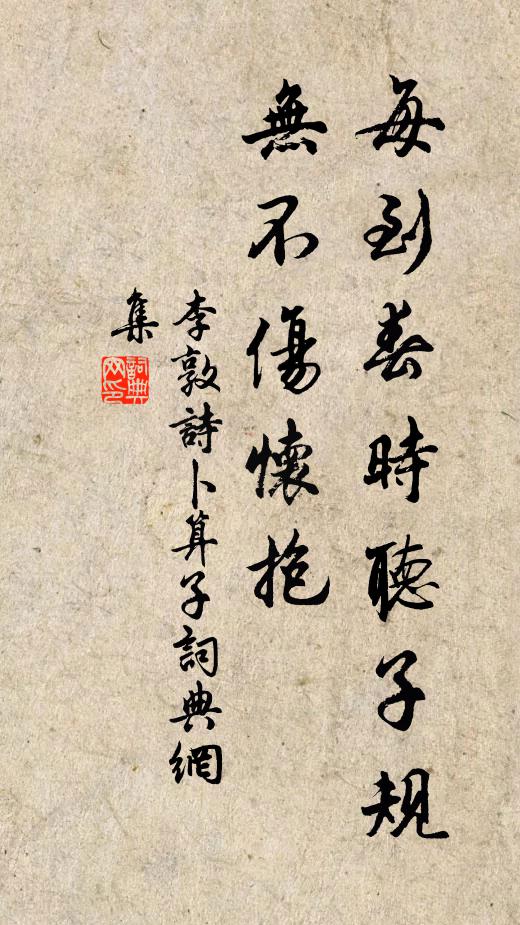 每到春時聽子規
無不傷懷抱
李敦詩卜算子詞典網
集
詞典
网印